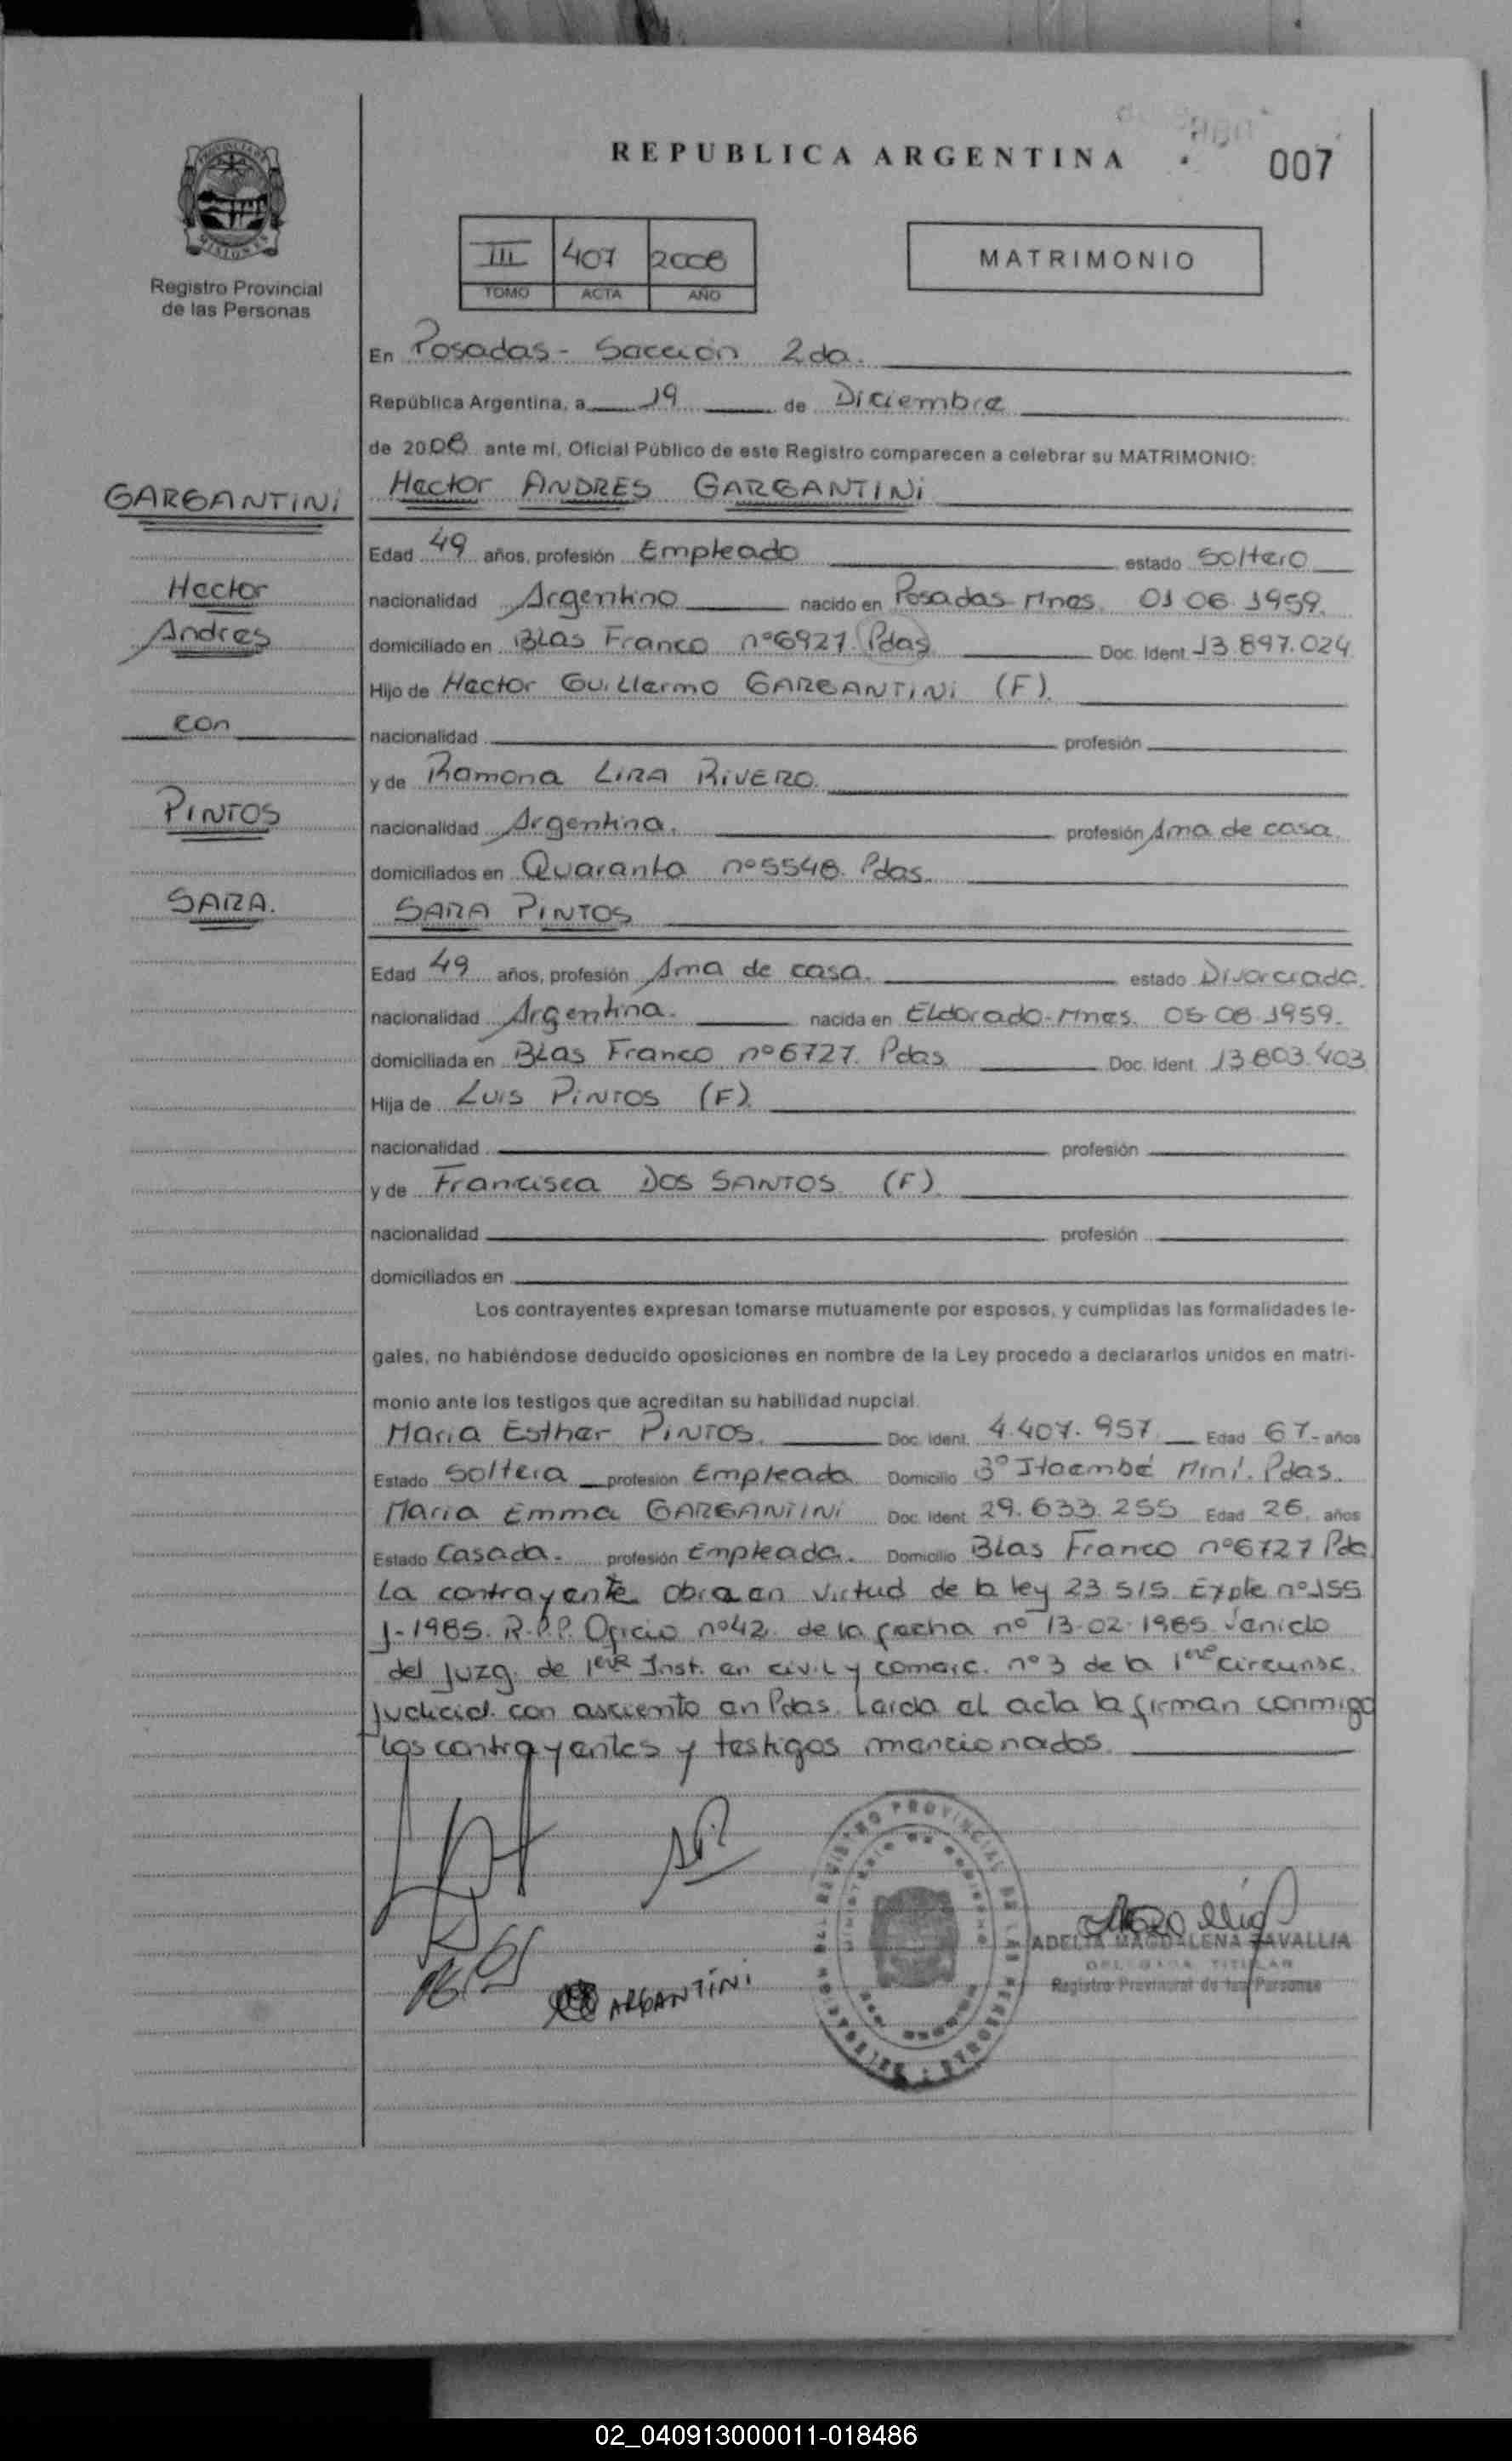 REPUBLICA ARGENTINA
007
PROVINCIA DE
MISIONES
Registro Provincial
de las Personas
III 407 2008
TOMO ACTA AÑO
MATRIMONIO
En Posadas - Sección 2da.
República Argentina, a 19 de Diciembre
de 2008 ante mí, Oficial Público de este Registro comparecen a celebrar su MATRIMONIO:
GARGANTINI
Hector ANDRES GARGANTINI
Edad 49 años, profesión Empleado estado Soltero
Hector
nacionalidad Argentino nacido en Posadas-Mnes. 01 06 1959.
Andres
domiciliado en BLas Franco nº6927. Pdas Doc. Ident. 13.897.024
Hijo de Hector GuiLlermo GARGANTINi (F).
con
nacionalidad profesión
y de Ramona LIRA RIVERO.
PINTOS
nacionalidad Argentina. profesión Ama de casa
domiciliados en Quaranta nº5548. Pdas.
SARA.
SARA PINTOS
Edad 49 años, profesión Ama de casa. estado Divorciada.
nacionalidad Argentina. nacida en ELdorado-Mnes. 05-08 1959.
domiciliada en BLas Franco nº6727. Pdas Doc. Ident. 13.803.403
Hija de Luis PINTOS (F).
nacionalidad profesión
y de Francisca DOS SANTOS (F).
nacionalidad profesión
domiciliados en
Los contrayentes expresan tomarse mutuamente por esposos, y cumplidas las formalidades le-
gales, no habiéndose deducido oposiciones en nombre de la Ley procedo a declararlos unidos en matri-
monio ante los testigos que acreditan su habilidad nupcial.
Maria Esther PINTOS. Doc. Ident. 4.407.957 Edad 67- años
Estado Soltera profesión Empleada Domicilio 3º Itaembé Miní. Pdas.
Maria Emma GARGANTINI Doc. Ident. 29.633.255 Edad 26. años
Estado Casada. profesión Empleada. Domicilio BLas Franco nº6727 Pda
La contrayente obra en virtud de la ley 23.515 Expte nº155
J-1985. R.P.P. Oficio nº42. de la fecha nº 13-02-1985 Venido
del juzg. de 1era Inst. en civiL y comerc. nº 3 de la 1era circunsc.
judicial con asciento en Pdas. Leida el acta la firman conmigo
los contrayentes y testigos mencionados.
ARGANTINI
REGISTRO PROVINCIAL DE LAS PERSONAS
ADELIA MAGDALENA ZAVALLIA
DELEGADA TITULAR
Registro Provincial de las Personas
02_040913000011-018486